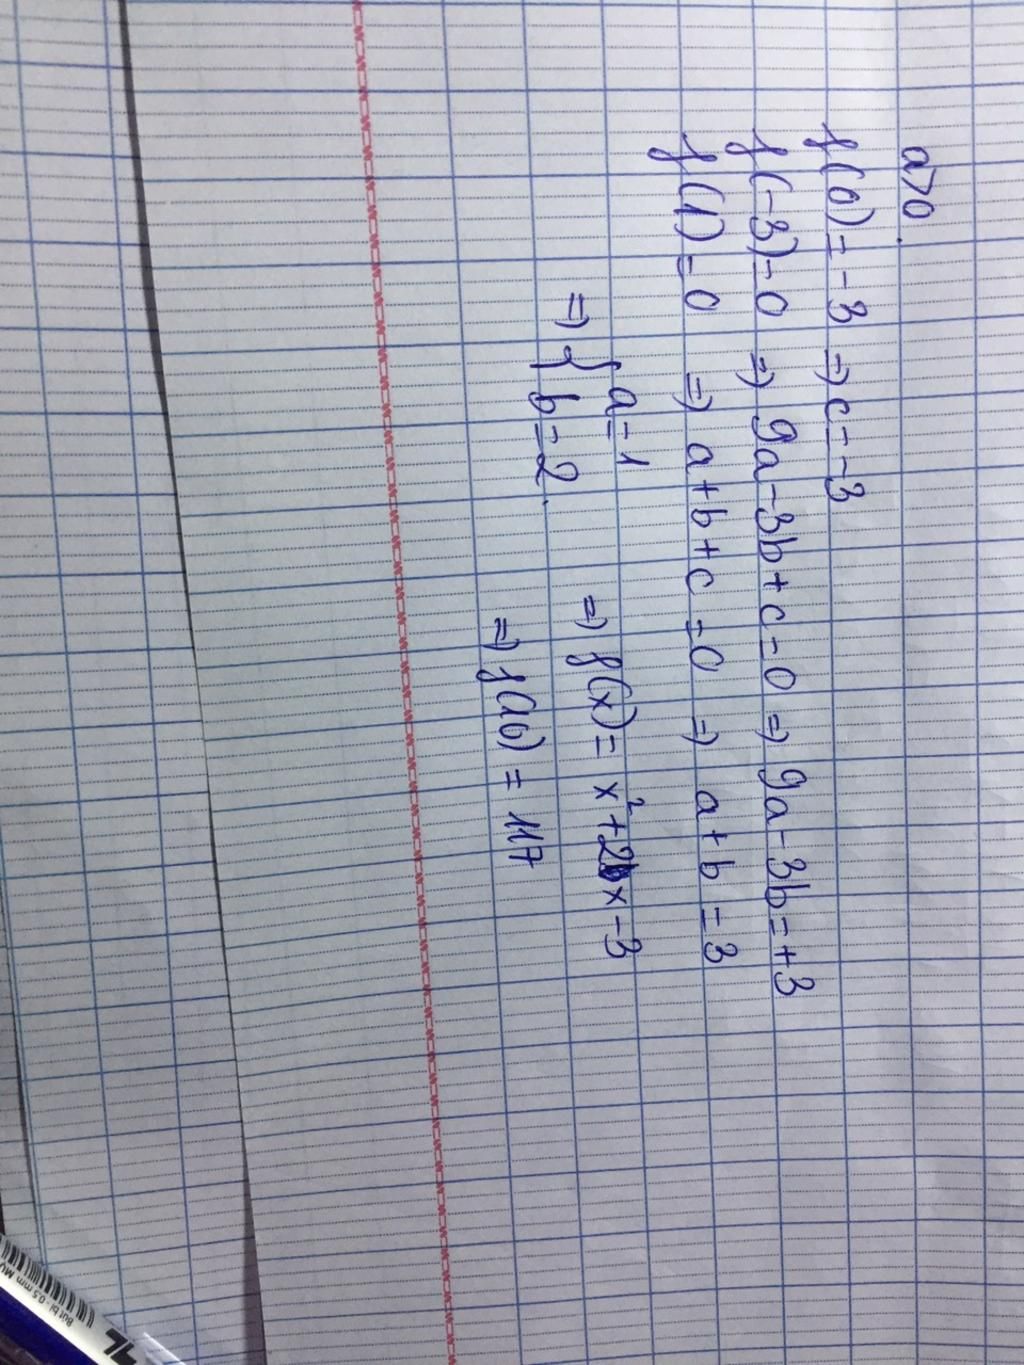 a>0.
f(0) = -3 => c = -3
f(-3) = 0 => 9a - 3b + c = 0 => 9a - 3b = +3
f(1) = 0 => a + b + c = 0 => a + b = 3
=> { a = 1
b = 2. => f(x) = x² + 2x - 3
=> f(10) = 117
Bút bi - 0.5 mm
TL